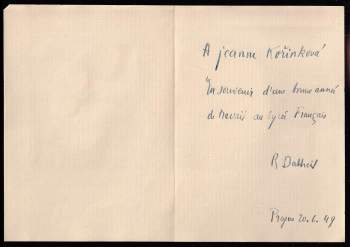 A Jeanne Kořínková
En souvenir d'une bonne année
de travail au Lycée Français
R
Prague 20. 6. 49